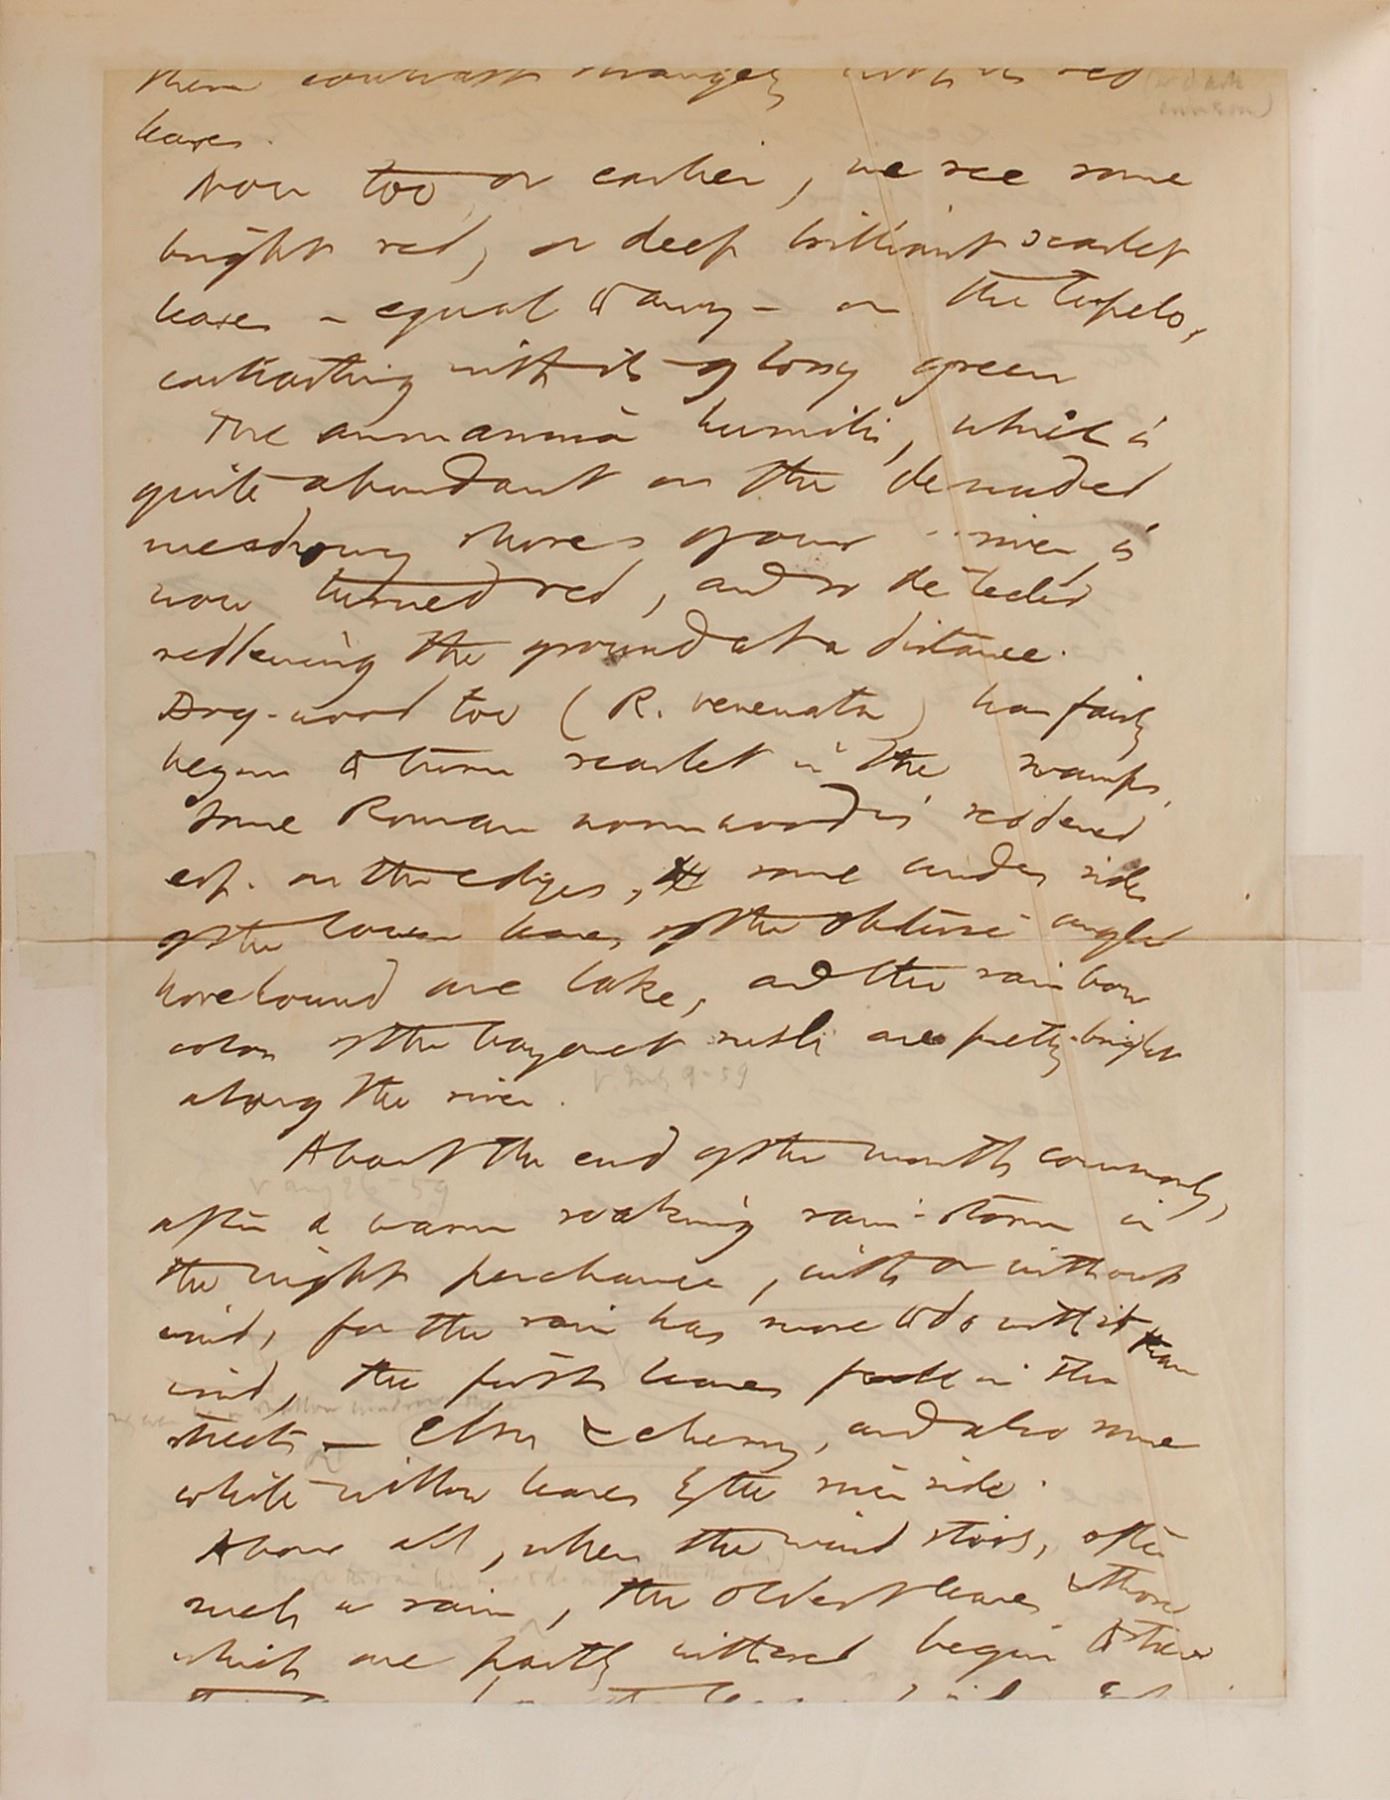 them contrast strangely with its red (or dark crimson)
leaves.
Now too, or earlier, we see some
bright red, or deep brilliant scarlet
leaves – equal to any – on the tupelo,
contrasting with its glossy green
The ammannia humilis, which is
quite abundant on the denuded
meadowy shores of our river is
now turned red, and so detected
reddening the ground at a distance.
Dog-wood too (R. venenata) has fairly
begun to turn scarlet in the swamps.
Some Roman wormwood is reddened
esp. on the edges, some under sides
of the lower leaves of the obtuse angled
horehound are lake, and the rainbow
colors of the bayonet rush are pretty bright
along the river. V. July 9–59
About the end of the month commonly,
V Aug 26–59
after a warm soaking rain-storm in
the night perchance, with or without
wind, for the rain has more to do with it than
wind, the first leaves fall in the
streets – Elm & cherry, and also some
white willow leaves by the river side.
Above all, when the wind stirs, after
though the rain has more to do with it than the wind
such a rain, the oldest leaves & those
which are partly withered begin to strew